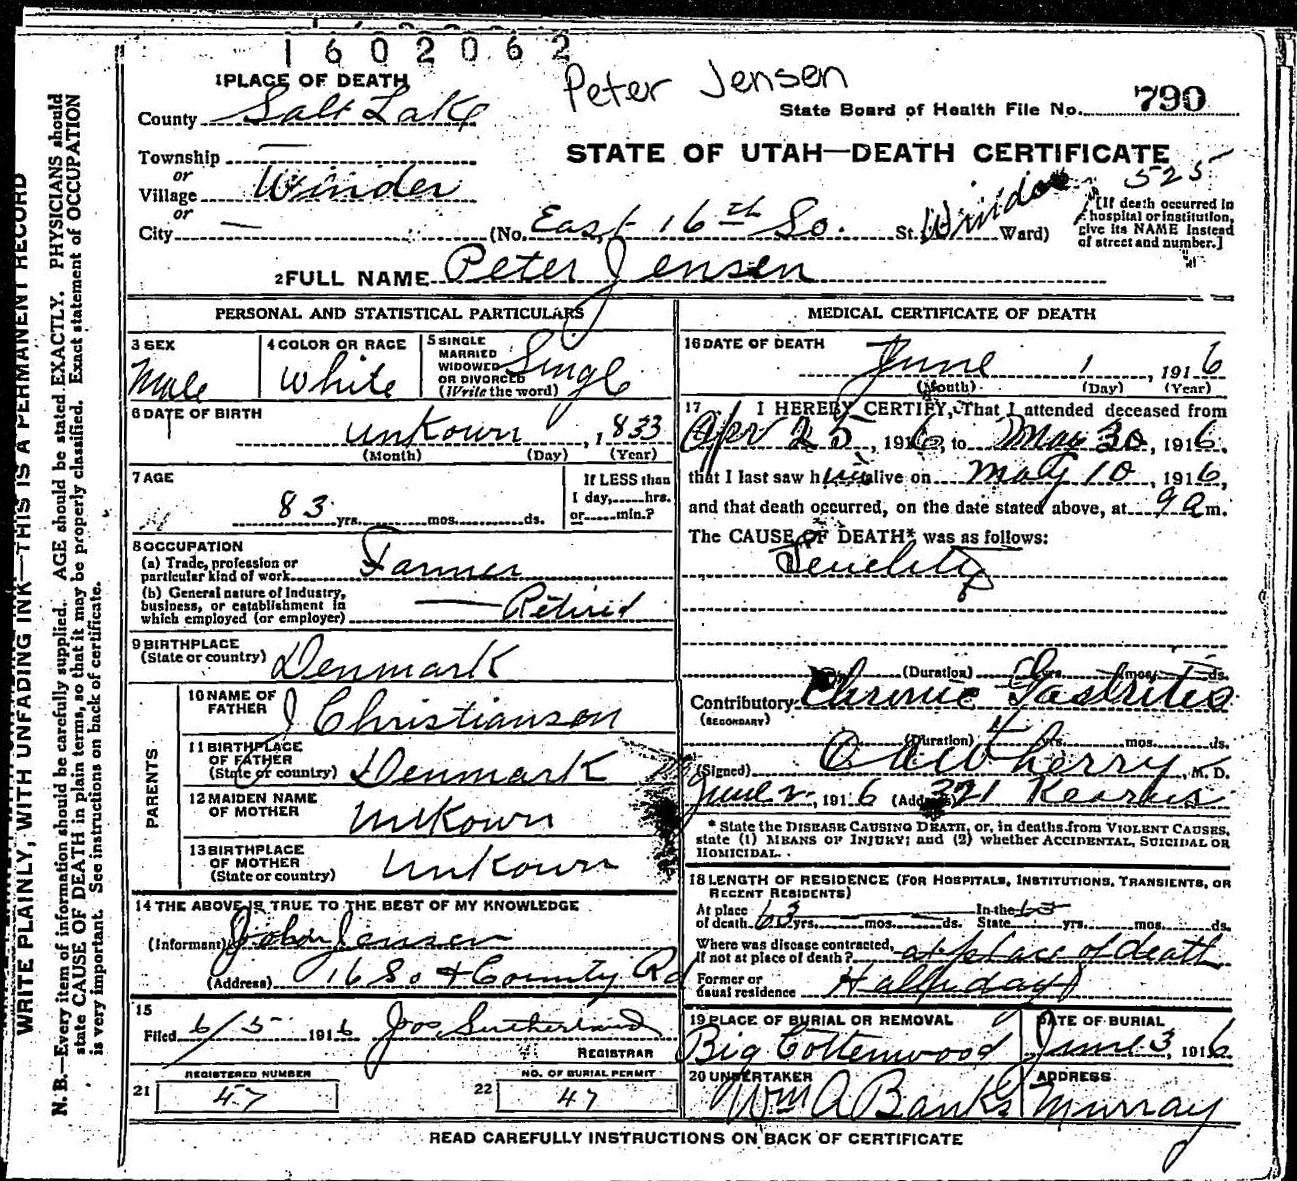 1602062
Peter Jensen
1 PLACE OF DEATH
State Board of Health File No. 790
County Salt Lake
STATE OF UTAH—DEATH CERTIFICATE
525
Township —
or
Village Winder
or
City — (No. East 16th So. St. Ward)
[If death occurred in hospital or institution, give its NAME instead of street and number.]
2 FULL NAME Peter Jensen
PERSONAL AND STATISTICAL PARTICULARS
3 SEX
Male
4 COLOR OR RACE
White
5 SINGLE
MARRIED
WIDOWED
OR DIVORCED
(Write the word)
Single
6 DATE OF BIRTH
unkown, 1833
(Month) (Day) (Year)
7 AGE
83 yrs. mos. ds.
If LESS than
1 day, hrs.
or min.?
8 OCCUPATION
(a) Trade, profession or
particular kind of work Farmer
(b) General nature of industry,
business, or establishment in
which employed (or employer) — Retired
9 BIRTHPLACE
(State or country) Denmark
PARENTS
10 NAME OF
FATHER J Christianson
11 BIRTHPLACE
OF FATHER
(State or country) Denmark
12 MAIDEN NAME
OF MOTHER Unkown
13 BIRTHPLACE
OF MOTHER
(State or country) Unkown
14 THE ABOVE IS TRUE TO THE BEST OF MY KNOWLEDGE
(Informant) John Jensen
(Address) 16 So & County Rd
15
Filed 6/5 1916 Jos Sutherland
REGISTRAR
REGISTERED NUMBER
21 47
NO. OF BURIAL PERMIT
22 47
MEDICAL CERTIFICATE OF DEATH
16 DATE OF DEATH
June 1, 1916
(Month) (Day) (Year)
17 I HEREBY CERTIFY, That I attended deceased from
Apr 25, 1916, to May 30, 1916,
that I last saw him alive on May 10, 1916,
and that death occurred, on the date stated above, at 9 a m.
The CAUSE OF DEATH* was as follows:
(Duration) yrs. mos. ds.
Contributory Chronic Gastritis
(SECONDARY)
(Duration) 4 yrs. mos. ds.
(Signed) Cherry, M. D.
June 2, 1916 (Address) 321 Kearns
* State the DISEASE CAUSING DEATH, or, in deaths from VIOLENT CAUSES,
state (1) MEANS OF INJURY; and (2) whether ACCIDENTAL, SUICIDAL OR
HOMICIDAL.
18 LENGTH OF RESIDENCE (FOR HOSPITALS, INSTITUTIONS, TRANSIENTS, OR
RECENT RESIDENTS)
At place
of death 63 yrs. mos. ds. In the
State yrs. mos. ds.
Where was disease contracted,
if not at place of death? at place of death
Former or
usual residence Halliday
19 PLACE OF BURIAL OR REMOVAL
Big Cottenwood
DATE OF BURIAL
June 3, 1916
20 UNDERTAKER
Wm A Banks
ADDRESS
Murray
READ CAREFULLY INSTRUCTIONS ON BACK OF CERTIFICATE
WRITE PLAINLY, WITH UNFADING INK—THIS IS A PERMANENT RECORD
N. B.—Every item of information should be carefully supplied. AGE should be stated EXACTLY. PHYSICIANS should
state CAUSE OF DEATH in plain terms, so that it may be properly classified. Exact statement of OCCUPATION
is very important. See instructions on back of certificate.